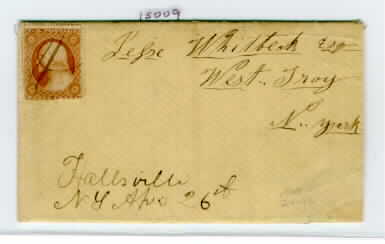 15009
Jesse Whitbeck Esq
West.. Troy
N.. York
Hallsville
NY 26th